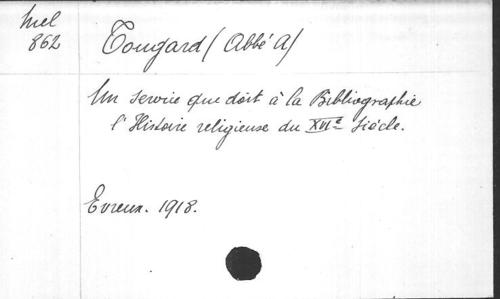 Mel
862
Tougard (Abbé A)
Un service que doit à la Bibliographie
l'Histoire religieuse du XVIe siècle.
Evreux. 1918.